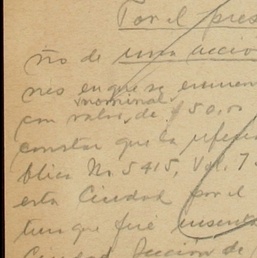 Por el pres
ño de una accio
nes en que se encuen
nominal
con valor, de $50,00
constar que la refere
blica No 5415, Vol. 7
esta Ciudad por el
tura que fué inserta
Ciudad Sección de